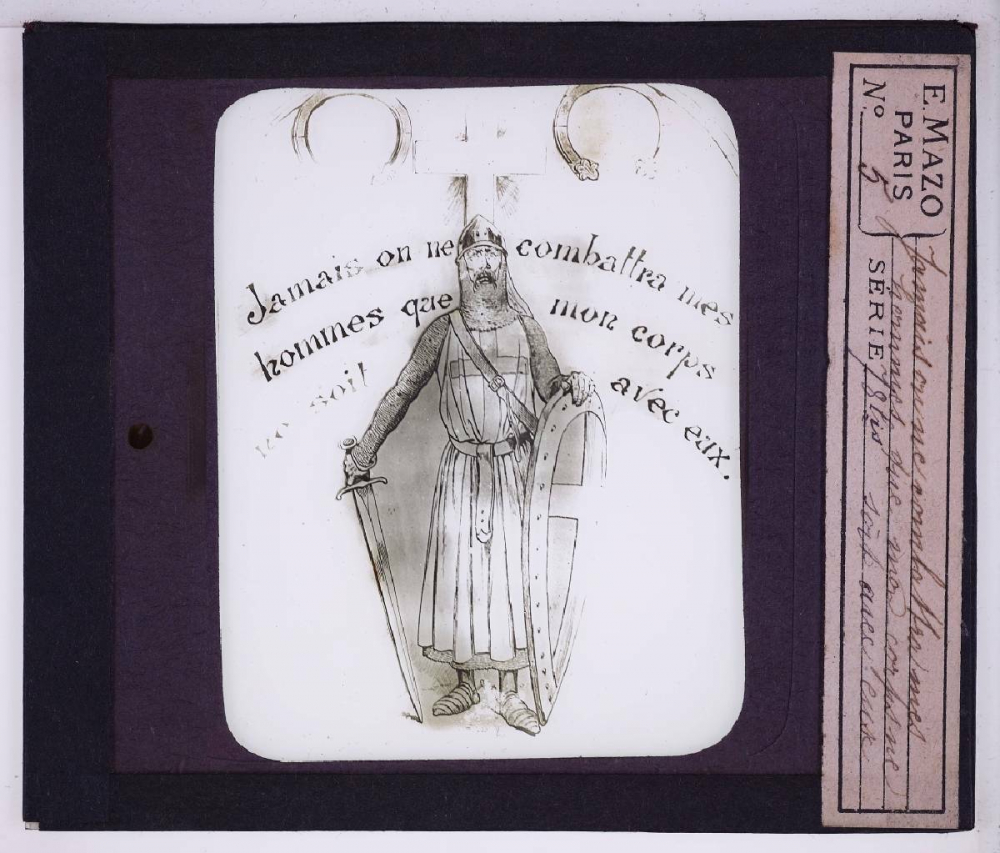 Jamais on ne combattra mes
hommes que mon corps
ne soit avec eux.
E. MAZO
PARIS
Nº 5
SÉRIE 78bis
Jamais on ne combattra mes
hommes que mon corps ne
soit avec eux